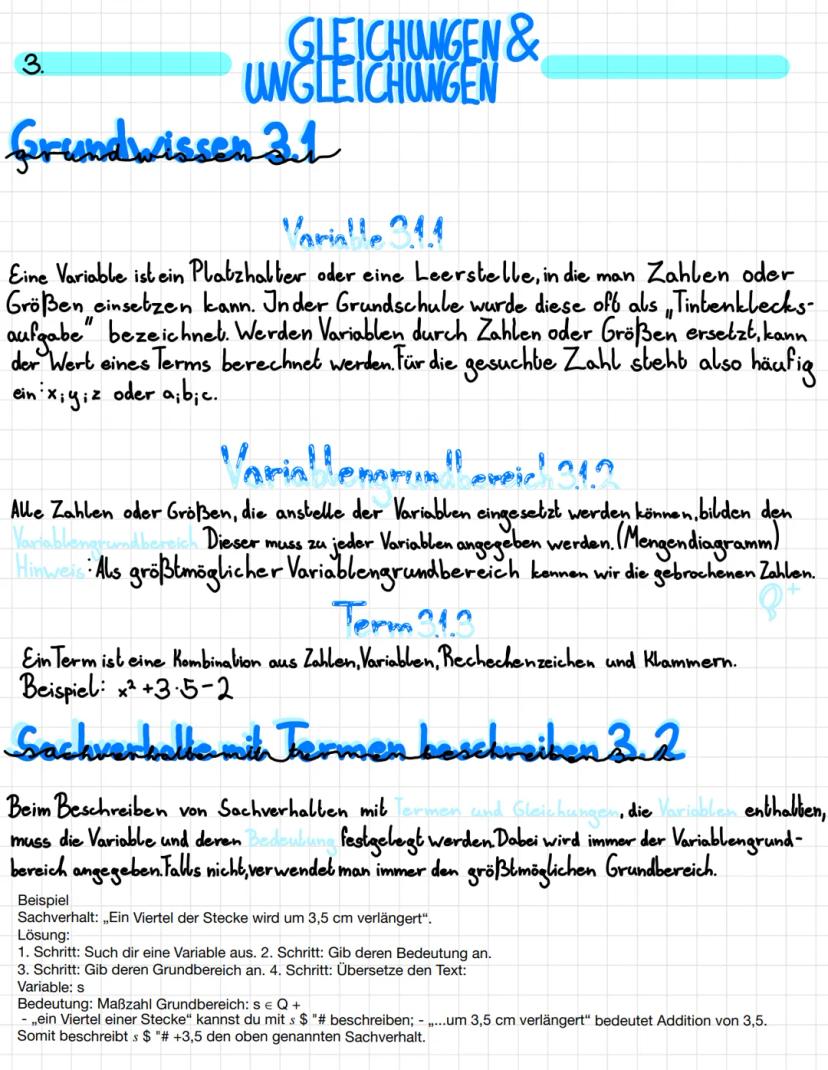 GLEICHUNGEN &
3.
UNGLEICHUNGEN
Grundwissen 3.1
Variable 3.1.1
Eine Variable ist ein Platzhalter oder eine Leerstelle, in die man Zahlen oder
Größen einsetzen kann. In der Grundschule wurde diese oft als „Tintenklecks-
aufgabe" bezeichnet. Werden Variablen durch Zahlen oder Größen ersetzt, kann
der Wert eines Terms berechnet werden. Für die gesuchte Zahl steht also häufig
ein: x;y;z oder a;b;c.
Variablengrundbereich 3.1.2
Alle Zahlen oder Größen, die anstelle der Variablen eingesetzt werden können, bilden den
Variablengrundbereich Dieser muss zu jeder Variablen angegeben werden. (Mengendiagramm)
Hinweis: Als größtmöglicher Variablengrundbereich kennen wir die gebrochenen Zahlen.
Q+
Term 3.1.3
Ein Term ist eine Kombination aus Zahlen, Variablen, Rechechenzeichen und Klammern.
Beispiel: x² +3·5-2
Sachverhalte mit Termen beschreiben 3.2
Beim Beschreiben von Sachverhalten mit Termen und Gleichungen, die Variablen enthalten,
muss die Variable und deren Bedeutung festgelegt werden. Dabei wird immer der Variablengrund-
bereich angegeben. Falls nicht, verwendet man immer den größtmöglichen Grundbereich.
Beispiel
Sachverhalt: „Ein Viertel der Stecke wird um 3,5 cm verlängert“.
Lösung:
1. Schritt: Such dir eine Variable aus. 2. Schritt: Gib deren Bedeutung an.
3. Schritt: Gib deren Grundbereich an. 4. Schritt: Übersetze den Text:
Variable: s
Bedeutung: Maßzahl Grundbereich: s ∈ Q +
- „ein Viertel einer Stecke“ kannst du mit s $ "# beschreiben; - „...um 3,5 cm verlängert“ bedeutet Addition von 3,5.
Somit beschreibt s $ "# +3,5 den oben genannten Sachverhalt.